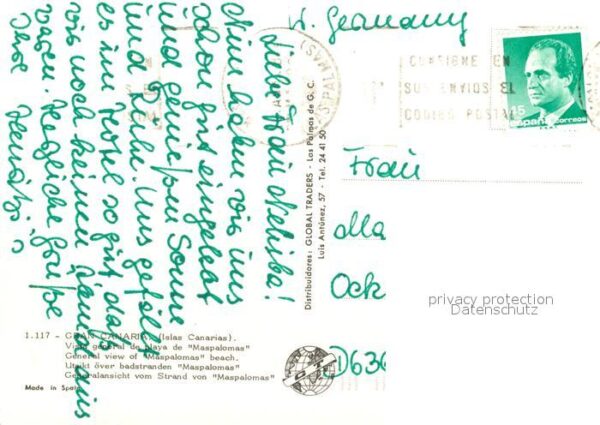 Liebe Frau Nehiba!
Nun haben wir uns
schon gut eingelebt
und genießen Sonne
und Ruhe. Uns gefällt
es im Hotel so gut daß
wir noch keinen
waren. Herzliche Grüße
Ihre
W. Germany
CONSIGNE EN
SUS ENVIOS EL
CODIGO POSTAL
15
España correos
Frau
Ma
Ock
D636
privacy protection
Datenschutz
Distribuidores: GLOBAL TRADERS - Las Palmas de G. C.
Luis Antúnez, 57 - Tel. 24 41 50
1.117 - GRAN CANARIA. (Islas Canarias).
Vista general de playa de "Maspalomas"
General view of "Maspalomas" beach.
Utsikt över badstranden "Maspalomas"
Generalansicht vom Strand von "Maspalomas"
Made in Spain